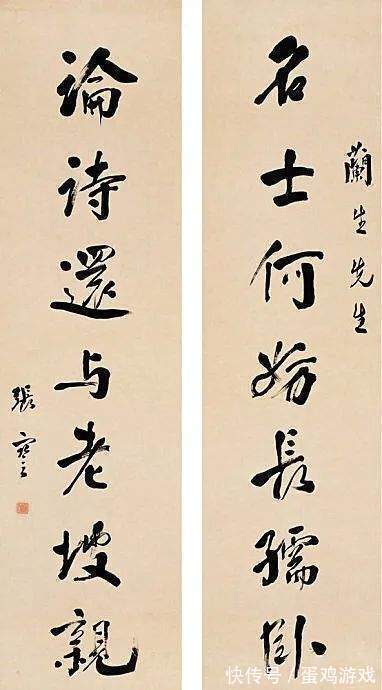 蘭生先生
名士何妨長孺卧
論詩還与老坡親
張謇
快传号/蛋鸡游戏